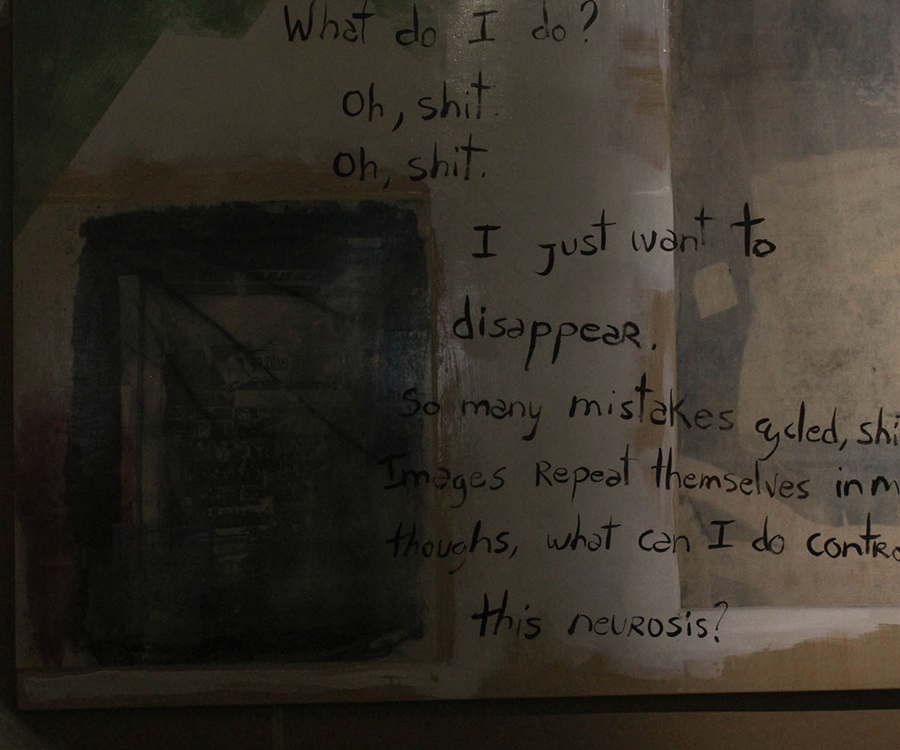 What do I do?
Oh, shit.
Oh, shit.
I just want to
disappear.
So many mistakes cycled, shi
Images Repeat themselves in m
thoughs, what can I do contro
this neurosis?